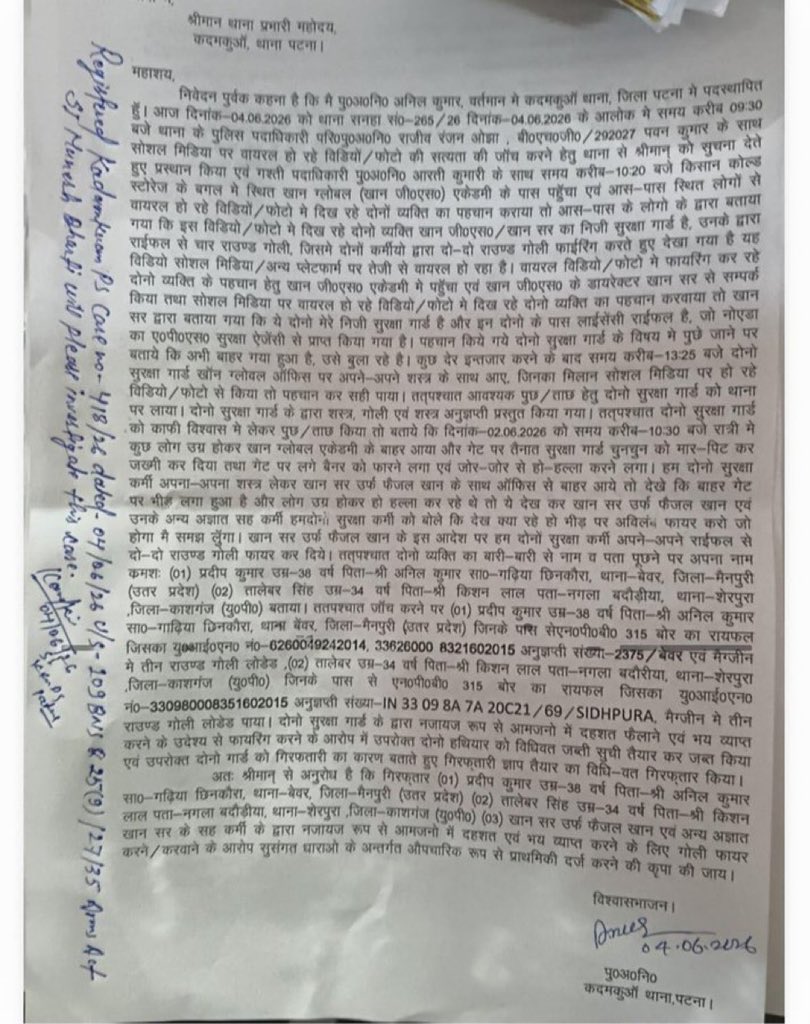 श्रीमान थाना प्रभारी महोदय,
कदमकुआँ, थाना पटना।
महाशय,
निवेदन पुर्वक कहना है कि मै पु०अ०नि० अनिल कुमार, वर्तमान मे कदमकुआँ थाना, जिला पटना मे पदस्थापित
हुँ। आज दिनांक-04.06.2026 को थाना सनहा सं०-265/26 दिनांक-04.06.2026 के आलोक मे समय करीब 09:30
बजे थाना के पुलिस पदाधिकारी परि०पु०अ०नि० राजीव रंजन ओझा , बी०एच०जी०/292027 पवन कुमार के साथ
सोशल मिडिया पर वायरल हो रहे विडियों/फोटो की सत्यता की जाँच करने हेतु थाना से श्रीमान् को सुचना देते
हुए प्रस्थान किया एवं गश्ती पदाधिकारी पु०अ०नि० आरती कुमारी के साथ समय करीब-10:20 बजे किसान कोल्ड
स्टोरेज के बगल मे स्थित खान ग्लोबल (खान जी०एस०) एकेडमी के पास पहुँचा एवं आस-पास स्थित लोगों से
वायरल हो रहे विडियों/फोटो मे दिख रहे दोनों व्यक्ति का पहचान कराया तो आस-पास के लोगो के द्वारा बताया
गया कि इस विडियों/फोटो मे दिख रहे दोनो व्यक्ति खान जी०एस०/खान सर का निजी सुरक्षा गार्ड है, उनके द्वारा
राईफल से चार राउण्ड गोली, जिसमे दोनों कर्मीयो द्वारा दो-दो राउण्ड गोली फाईरिंग करते हुए देखा गया है यह
विडियो सोशल मिडिया/अन्य प्लेटफार्म पर तेजी से वायरल हो रहा है। वायरल विडियों/फोटो मे फायरिंग कर रहे
दोनो व्यक्ति के पहचान हेतु खान जी०एस० एकेडमी मे पहुँचा एवं खान जी०एस० के डायरेक्टर खान सर से सम्पर्क
किया तथा सोशल मिडिया पर वायरल हो रहे विडियों/फोटो मे दिख रहे दोनो व्यक्ति का पहचान करवाया तो खान
सर द्वारा बताया गया कि ये दोनो मेरे निजी सुरक्षा गार्ड है और इन दोनो के पास लाईसेंसी राईफल है, जो नोएडा
का ए०पी०एस० सुरक्षा ऐजेंसी से प्राप्त किया गया है। पहचान किये गये दोनो सुरक्षा गार्ड के विषय मे पुछे जाने पर
बताये कि अभी बाहर गया हुआ है, उसे बुला रहे है। कुछ देर इन्तजार करने के बाद समय करीब-13:25 बजे दोनो
सुरक्षा गार्ड खॉन ग्लोवल ऑफिस पर अपने-अपने शस्त्र के साथ आए, जिनका मिलान सोशल मिडिया पर हो रहे
विडियों/फोटो से किया तो पहचान कर सही पाया। तत्पश्चात आवश्यक पुछ/ताछ हेतु दोनो सुरक्षा गार्ड को थाना
पर लाया। दोनो सुरक्षा गार्ड के द्वारा शस्त्र, गोली एवं शस्त्र अनुज्ञप्ती प्रस्तुत किया गया। तत्पश्चात दोनो सुरक्षा गार्ड
को काफी विश्वास मे लेकर पुछ/ताछ किया तो बताये कि दिनांक-02.06.2026 को समय करीब-10:30 बजे रात्री मे
कुछ लोग उग्र होकर खान ग्लोबल एकेडमी के बाहर आया और गेट पर तैनात सुरक्षा गार्ड चुनचुन को मार-पिट कर
जख्मी कर दिया तथा गेट पर लगे बैनर को फारने लगा एवं जोर-जोर से हो-हल्ला करने लगा। हम दोनो सुरक्षा
कर्मी अपना-अपना शस्त्र लेकर खान सर उर्फ फैजल खान के साथ ऑफिस से बाहर आये तो देखे कि बाहर गेट
पर भीड़ लगा हुआ है और लोग उग्र होकर हो हल्ला कर रहे थे तो ये देख कर खान सर उर्फ फैजल खान एवं
उनके अन्य अज्ञात सह कर्मी हमदोनो सुरक्षा कर्मी को बोले कि देख क्या रहे हो भीड़ पर अविलंब फायर करो जो
होगा मै समझ लूँगा। खान सर उर्फ फैजल खान के इस आदेश पर हम दोनो सुरक्षा कर्मी अपने-अपने राईफल से
दो-दो राउण्ड गोली फायर कर दिये। तत्पश्चात दोनो व्यक्ति का बारी-बारी से नाम व पता पूछने पर अपना नाम
कमशः (01) प्रदीप कुमार उम्र-38 वर्ष पिता-श्री अनिल कुमार सा०-गढ़िया छिनकौरा, थाना-बेवर, जिला-मैनपुरी
(उतर प्रदेश) (02) तालेबर सिंह उम्र-34 वर्ष पिता-श्री किशन लाल पता-नगला बदौड़ीया, थाना-शेरपुरा
,जिला-काशगंज (यु०पी०) बताया। ततपश्चात जाँच करने पर (01) प्रदीप कुमार उम्र-38 वर्ष पिता-श्री अनिल कुमार
सा०-गाढ़िया छिनकौरा, थाना बेवर, जिला-मैनपुरी (उतर प्रदेश) जिनके पास से एन०पी०बी० 315 बोर का रायफल
जिसका यु०आई०एन० नं०-6260049242014, 33626000 8321602015 अनुज्ञप्ती संख्या-2375/बेवर एवं मैग्जीन
मे तीन राउण्ड गोली लोडेड ,(02) तालेबर उम्र-34 वर्ष पिता-श्री किशन लाल पता-नगला बदौरीया, थाना-शेरपुरा
,जिला-काशगंज (यु०पी०) जिनके पास से एन०पी०बी० 315 बोर का रायफल जिसका यु०आई०एन०
नं०-330980008351602015 अनुज्ञप्ती संख्या-IN 33 09 8A 7A 20C21/69/SIDHPURA, मैग्जीन मे तीन
राउण्ड गोली लोडेड पाया। दोनो सुरक्षा गार्ड के द्वारा नजायज रूप से आमजनो में दहशत फैलाने एवं भय व्याप्त
करने के उदेश्य से फायरिंग करने के आरोप में उपरोक्त दोनो हथियार को विधिवत जब्ती सुची तैयार कर जब्त किया
एवं उपरोक्त दोनो गार्ड को गिरफतारी का कारण बताते हुए गिरफ्तारी ज्ञाप तैयार का विधि-वत गिरफ्तार किया।
अतः श्रीमान् से अनुरोध है कि गिरफ्तार (01) प्रदीप कुमार उम्र-38 वर्ष पिता-श्री अनिल कुमार
सा०-गढ़िया छिनकौरा, थाना-बेवर, जिला-मैनपुरी (उतर प्रदेश) (02) तालेबर सिंह उम्र-34 वर्ष पिता-श्री किशन
लाल पता-नगला बदौड़ीया, थाना-शेरपुरा ,जिला-काशगंज (यु०पी०) (03) खान सर उर्फ फैजल खान एवं अन्य अज्ञात
खान सर के सह कर्मी के द्वारा नजायज रूप से आमजनो में दहशत एवं भय व्याप्त करने के लिए गोली फायर
करने/करवाने के आरोप सुसंगत धाराओ के अन्तर्गत औपचारिक रूप से प्राथमिकी दर्ज करने की कृपा की जाय।
विश्वासभाजन।
04.06.2026
पु०अ०नि०
कदमकुआँ थाना,पटना।
Registered Kadamkuan PS Case no- 418/26 dated- 04/06/26 U/s- 109 BNS & 25(9)/27/35 Arms Act
SI Munesh Bharti will please investigate this case.
04/06/26